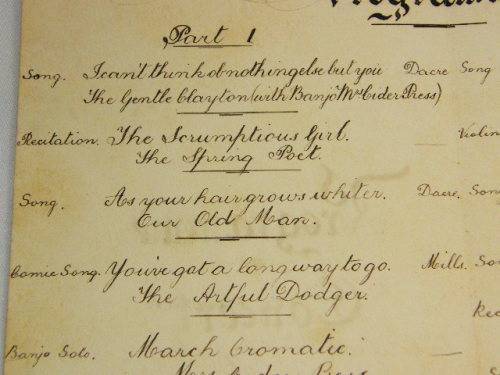 Part 1
Song. I can't think ob nothing else but you Dacre Song
The Gentle Clayton (with Banjo Mr Cider Press)
Recitation. The Scrumptious Girl. — Violin
The Spring Poet.
Song. As your hair grows whiter. Dacre. Son
Our Old Man.
Comic Song. You've got a long way to go. Mills. Son
The Artful Dodger. —
Rec
Banjo Solo. March Cromatic. — S